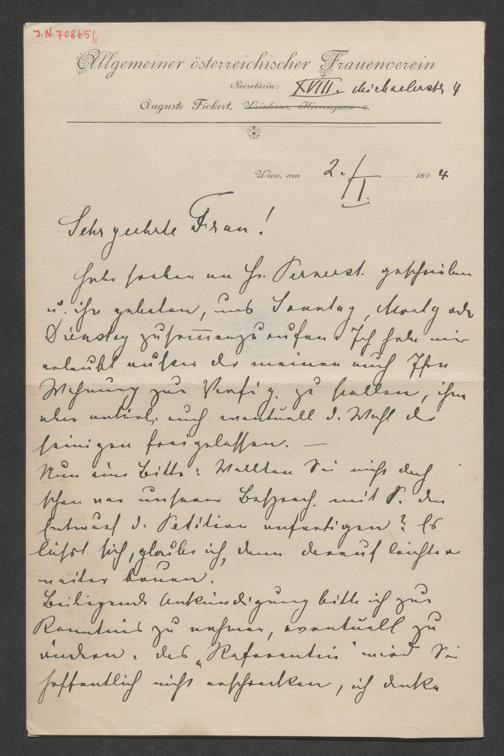 J.N. 70865/1
Allgemeiner österreichischer Frauenverein
Secretärin: XVIII. Michaelerstr 4
Auguste Fickert, Weinhaus, Herrengasse 9.
Wien, am 2./II. 1894
Sehr geehrte Frau!
Habe soeben an H. Pernerst. geschrieben
u. ihn gebeten, uns Sonntag, Montg oder
Dienstag zusammenzurufen. Ich habe mir
erlaubt außer der meinen auch Ihre
Wohnung zur Verfüg. zu stellen, ihm
aber natürl. auch eventuell d. Wahl der
seinigen freigelassen. —
Nun eine Bitte: Wollten Sie nicht doch
schon vor unserer Besprech. mit P. den
Entwurf d. Petition anfertigen? Es
läßt sich, glaube ich, dann darauf leichter
weiter bauen.
Beiliegende Ankündigung bitte ich zur
Kenntnis zu nehmen, eventuell zu
ändern. das „Referentin" wird Sie
hoffentlich nicht erschrecken, ich denke